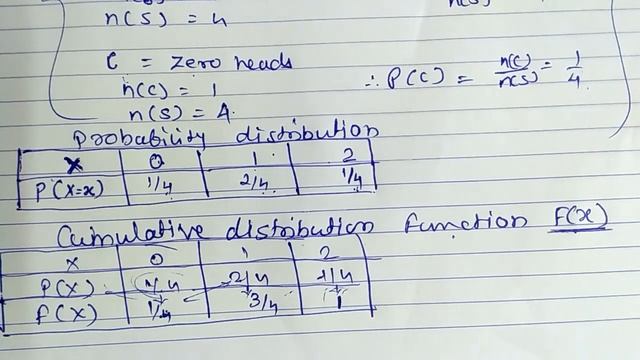 n(S) = 4
n(S)
C = zero heads
n(C) = 1
∴ P(C) = n(C)/n(S) = 1/4
n(S) = 4.
Probability distribution
x 0 1 2
P(X=x) 1/4 2/4 1/4
Cumulative distribution function F(x)
x 0 1 2
P(X) 1/4 2/4 1/4
F(X) 1/4 3/4 1